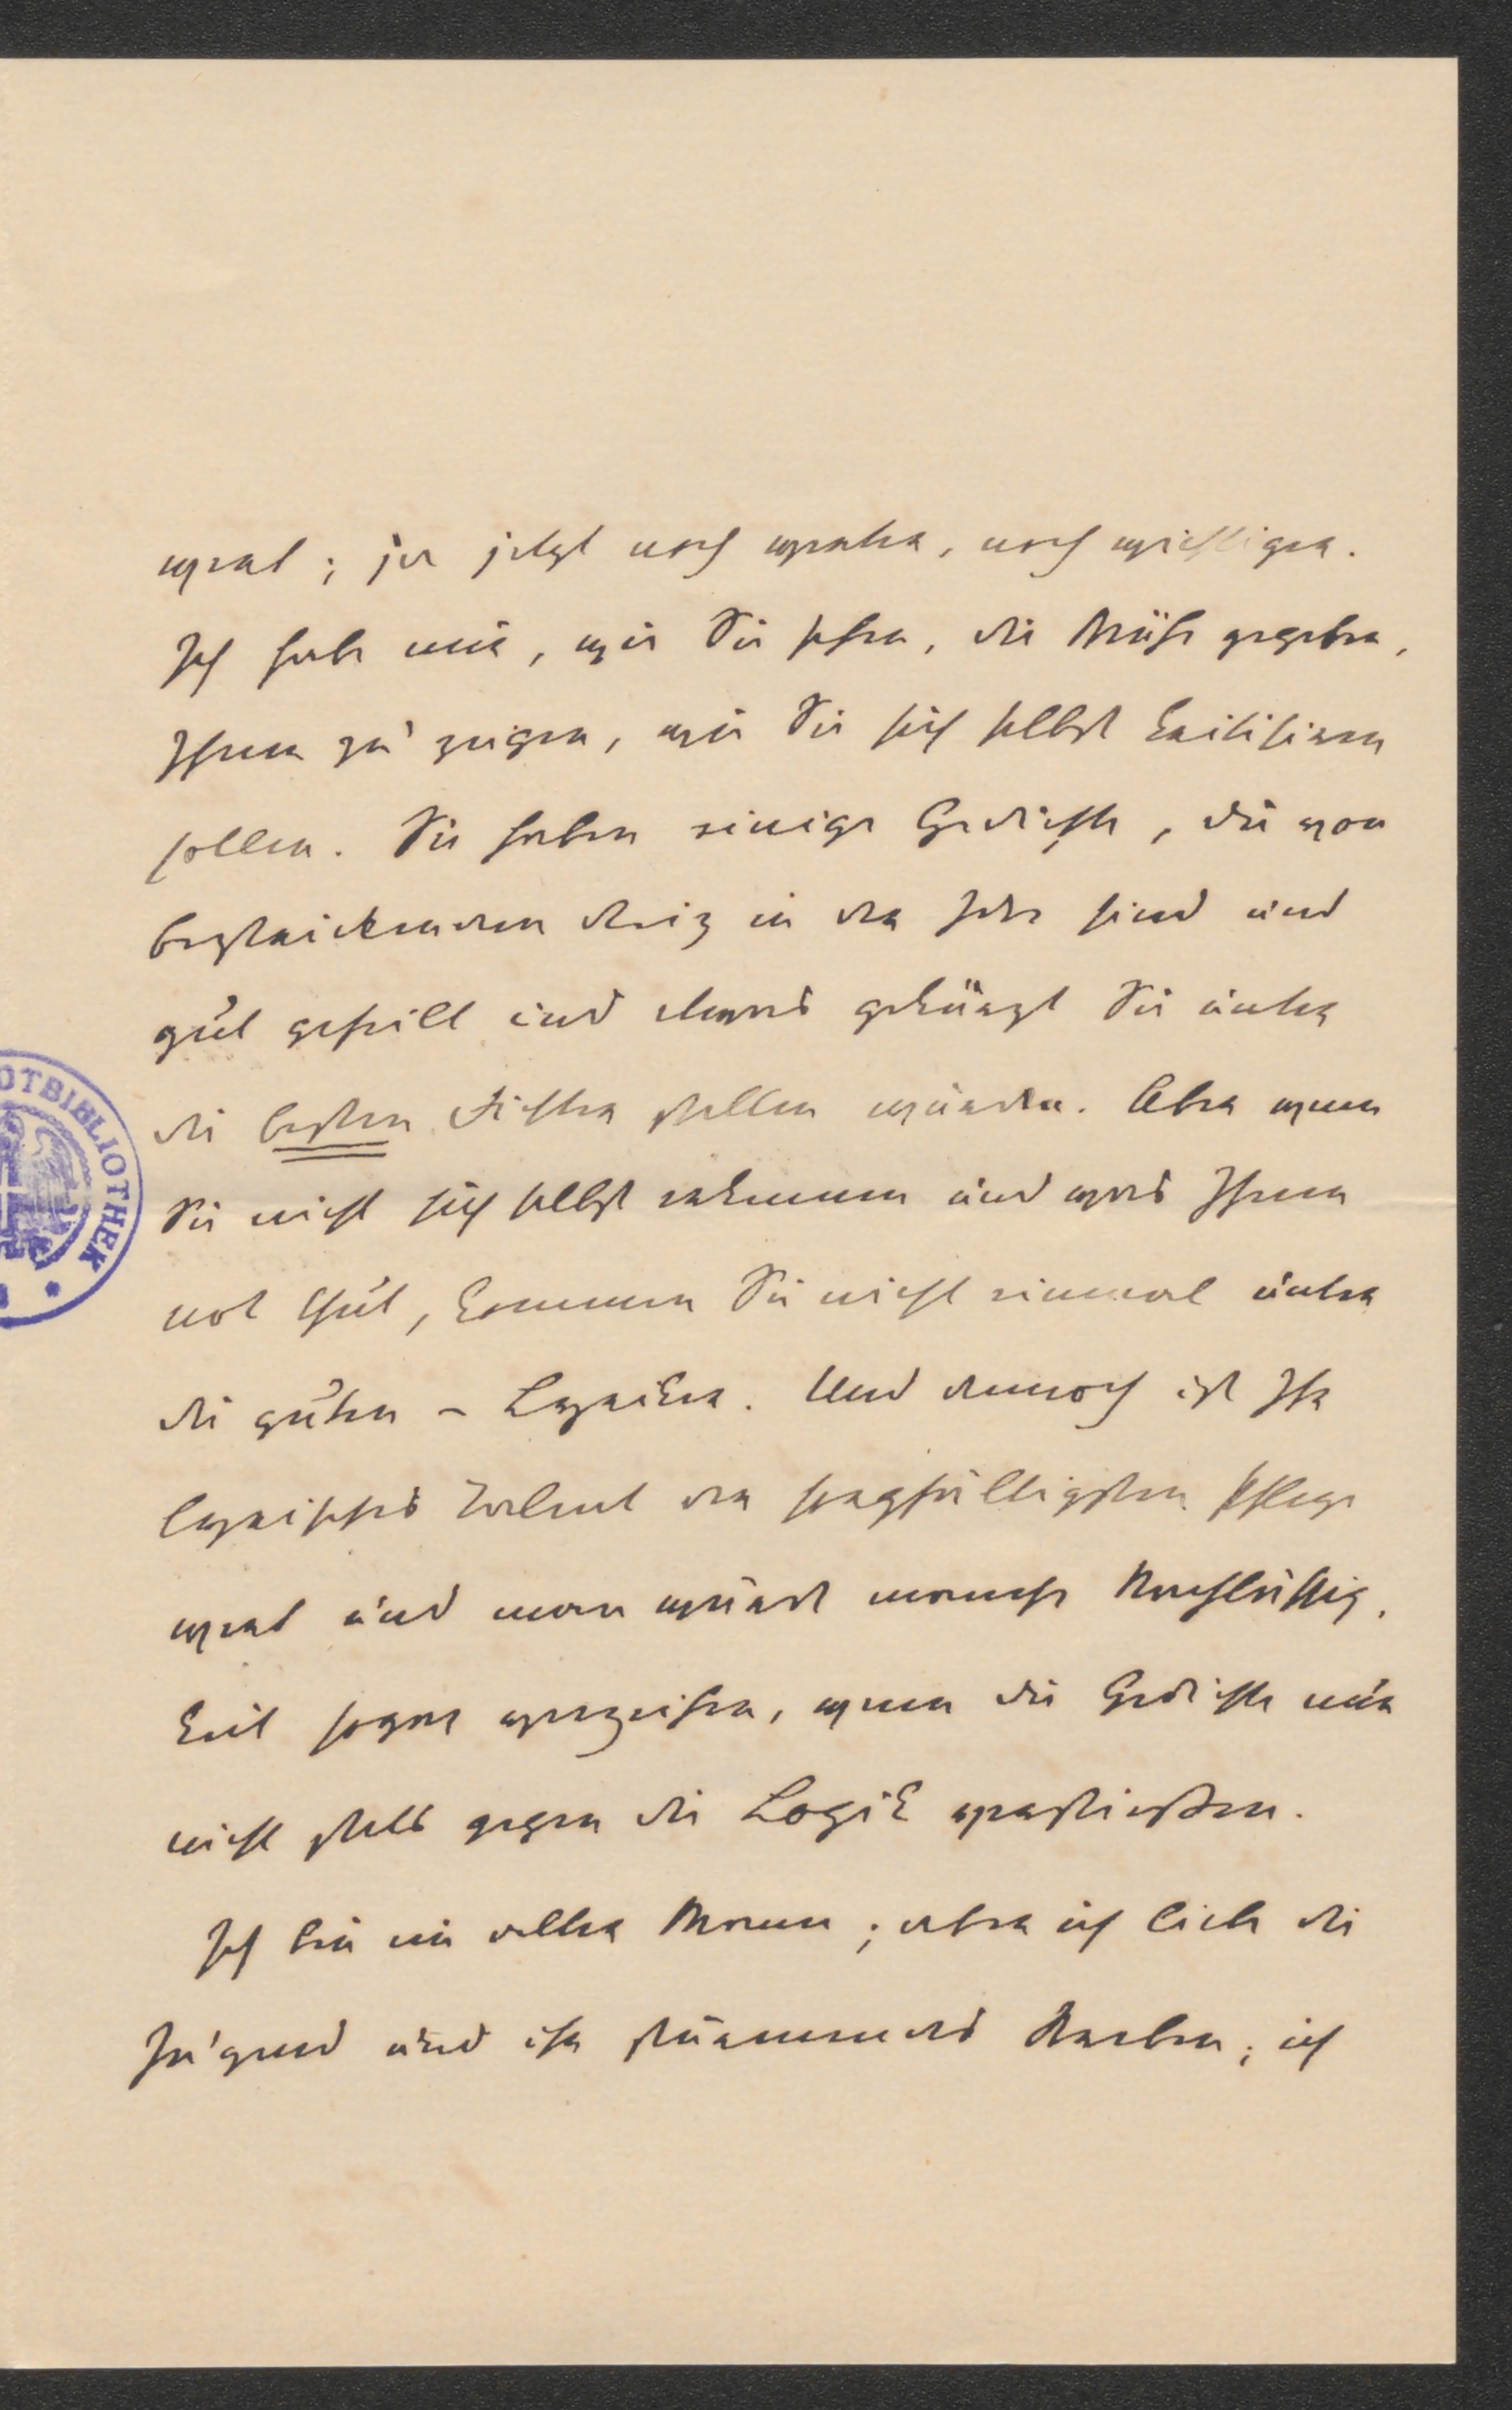 wert; ja jetzt noch werter, noch wichtiger.
Ich habe mir, wie Sie sehen, die Mühe gegeben,
Ihnen zu zeigen, wie Sie sich selbst kritisieren
sollen. Sie haben einige Gedichte, die von
bestrickendem Reiz in der Idee sind und
gut gefeilt und etwas gekürzt Sie unter
die besten Dichter stellen würden. Aber wenn
Sie nicht sich selbst erkennen und was Ihnen
not thut, kommen Sie nicht einmal unter
die guten – Lyriker. Und dennoch ist Ihr
lyrisches Talent der sorgfältigsten Pflege
wert und man würde manche Nachlässig-
keit sogar verzeihen, wenn die Gedichte nur
nicht stets gegen die Logik verstießen.
Ich bin ein alter Mann; aber ich liebe die
Jugend und ihr stürmendes Streben; ich
OTBIBLIOTHEK